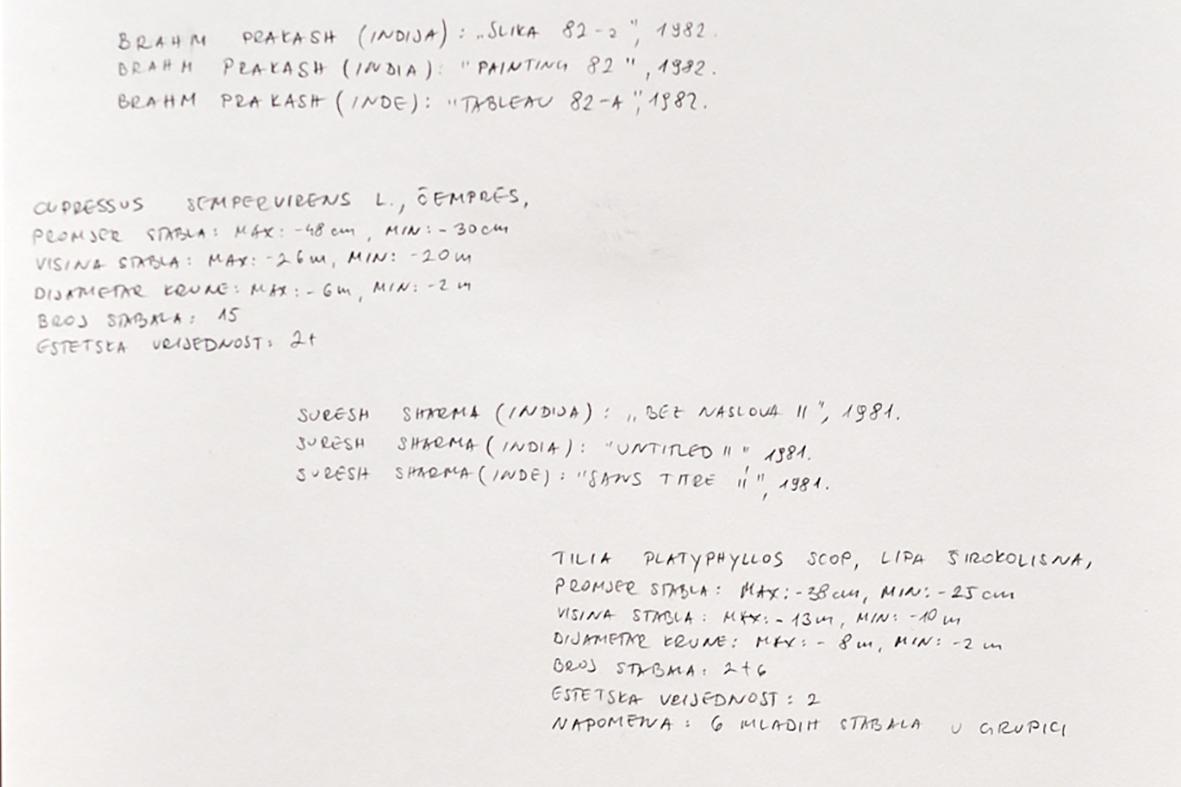 BRAHM PRAKASH (INDIJA): „SLIKA 82-2", 1982.
BRAHM PRAKASH (INDIA): "PAINTING 82", 1982.
BRAHM PRAKASH (INDE): "TABLEAU 82-A", 1982.
CUPRESSUS SEMPERVIRENS L., ČEMPRES,
PROMJER STABLA: MAX: -48 cm, MIN: -30cm
VISINA STABLA: MAX: -26m, MIN: -20m
DIJAMETAR KRUNE: MAX: -6m, MIN: -2 m
BROJ STABALA: 15
ESTETSKA VRIJEDNOST: 2+
SURESH SHARMA (INDIJA): „BEZ NASLOVA II", 1981.
SURESH SHARMA (INDIA): "UNTITLED II" 1981.
SURESH SHARMA (INDE): "SANS TITRE II", 1981.
TILIA PLATYPHYLLOS SCOP, LIPA ŠIROKOLISNA,
PROMJER STABLA: MAX: -38cm, MIN: -25 cm
VISINA STABLA: MAX: -13m, MIN: -10 m
DIJAMETAR KRUNE: MAX: - 8m, MIN: -2 m
BROJ STABALA: 2+6
ESTETSKA VRIJEDNOST: 2
NAPOMENA: 6 MLADIH STABALA U GRUPICI